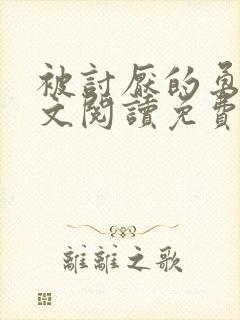 被討厭的勇
文閱讀免費
離離之歌